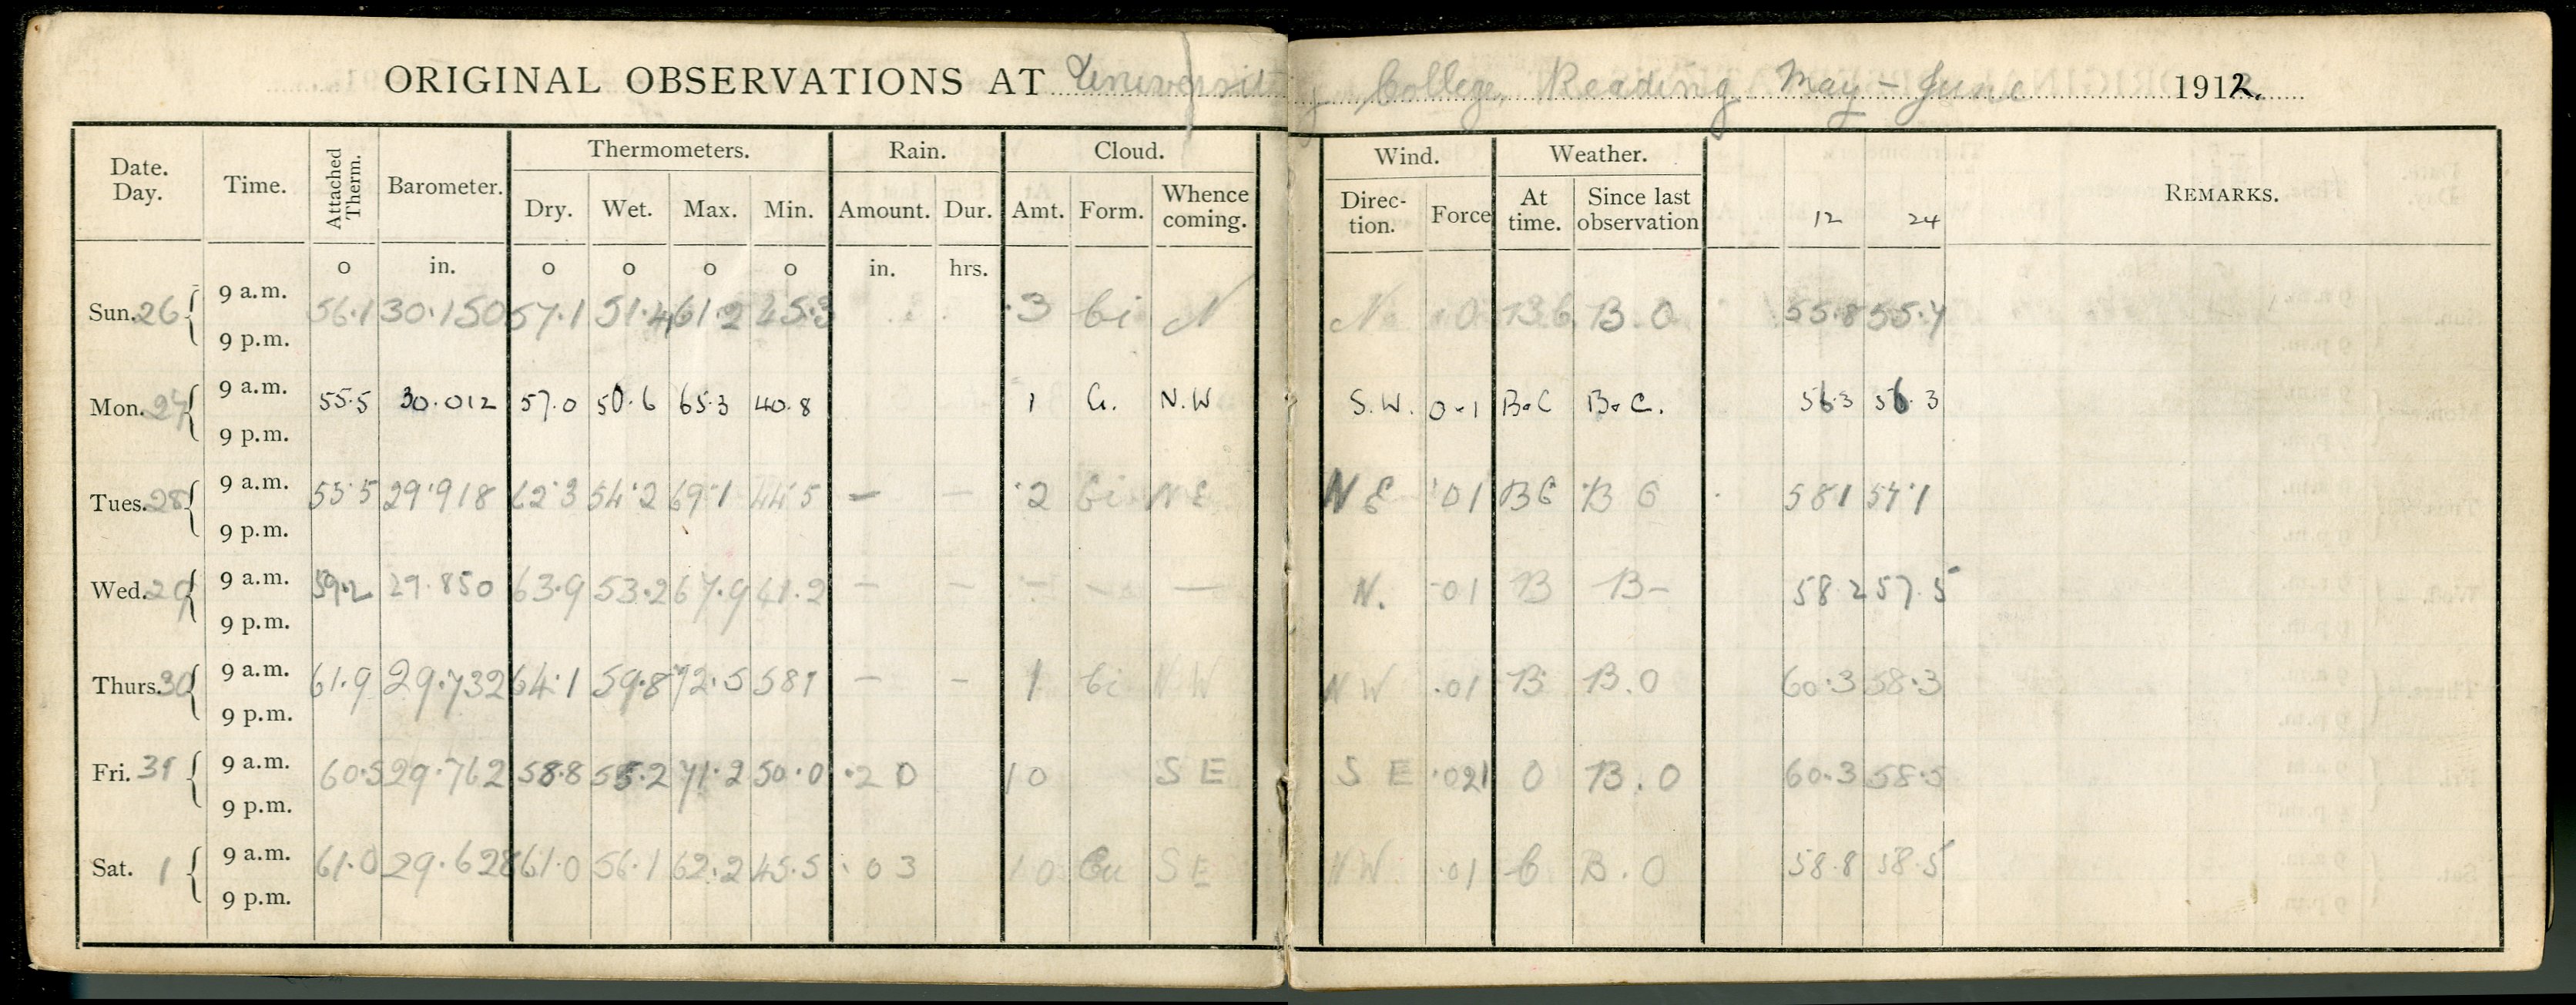 ORIGINAL OBSERVATIONS AT University College, Reading May - June 1912.
Date. Day. Time. Attached Therm. Barometer. Thermometers. Rain. Cloud. Wind. Weather. REMARKS.
Dry. Wet. Max. Min. Amount. Dur. Amt. Form. Whence coming. Direc-tion. Force At time. Since last observation 12 24
o in. o o o o in. hrs.
Sun. 26 9 a.m. 56.1 30.150 57.1 51.4 61.2 45.3 .3 Ci N N 0 B C B.C 55.8 55.4
9 p.m.
Mon. 27 9 a.m. 55.5 30.012 57.0 50.6 65.3 40.8 1 Ci. N.W S.W. 0.1 B.C B.C. 56.3 56.3
9 p.m.
Tues. 28 9 a.m. 55.5 29.918 62.3 54.2 69.1 44.5 — — .2 Ci N E N E .01 B C B C 58.1 57.1
9 p.m.
Wed. 29 9 a.m. 59.2 29.850 63.9 53.2 67.9 41.2 — — — — — N. .01 B B- 58.2 57.5
9 p.m.
Thurs. 30 9 a.m. 61.9 29.732 64.1 59.8 72.5 58.1 — — 1 Ci N W N W .01 B B.O 60.3 58.3
9 p.m.
Fri. 31 9 a.m. 60.5 29.762 58.8 55.2 71.2 50.0 .20 10 S E S E O B.O 60.3 58.5
9 p.m.
Sat. 1 9 a.m. 61.0 29.628 61.0 56.1 62.2 45.5 .03 10 Cu S E N W .01 C B.O 58.8 58.5
9 p.m.